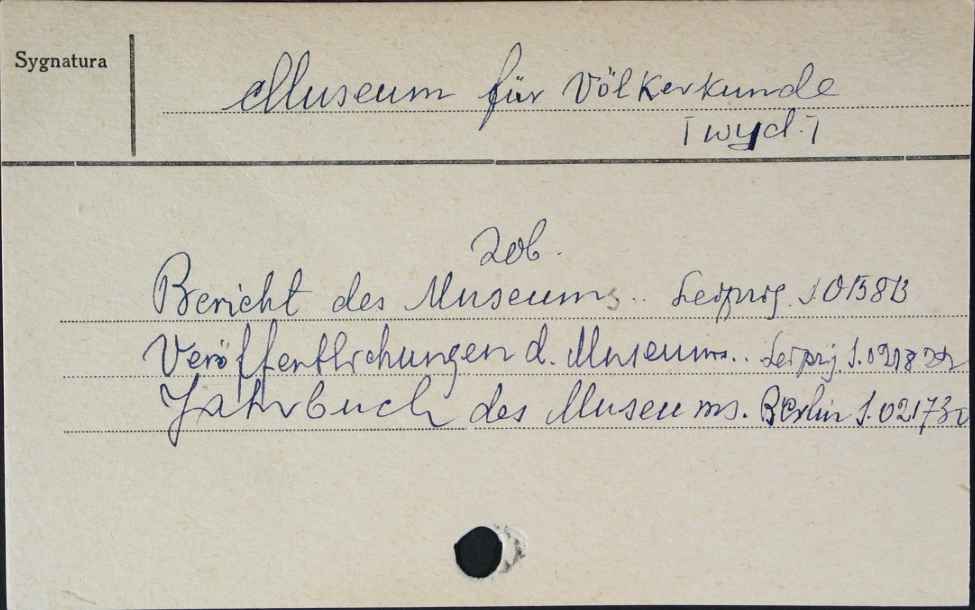 Sygnatura
Museum für Völkerkunde
[wyd.]
zob.
Bericht des Museums.. Leipzig. S 0158B
Veröffentlichungen d. Museums.. Leipzig. S.0218
Jahrbuch des Museums. Berlin S.0217